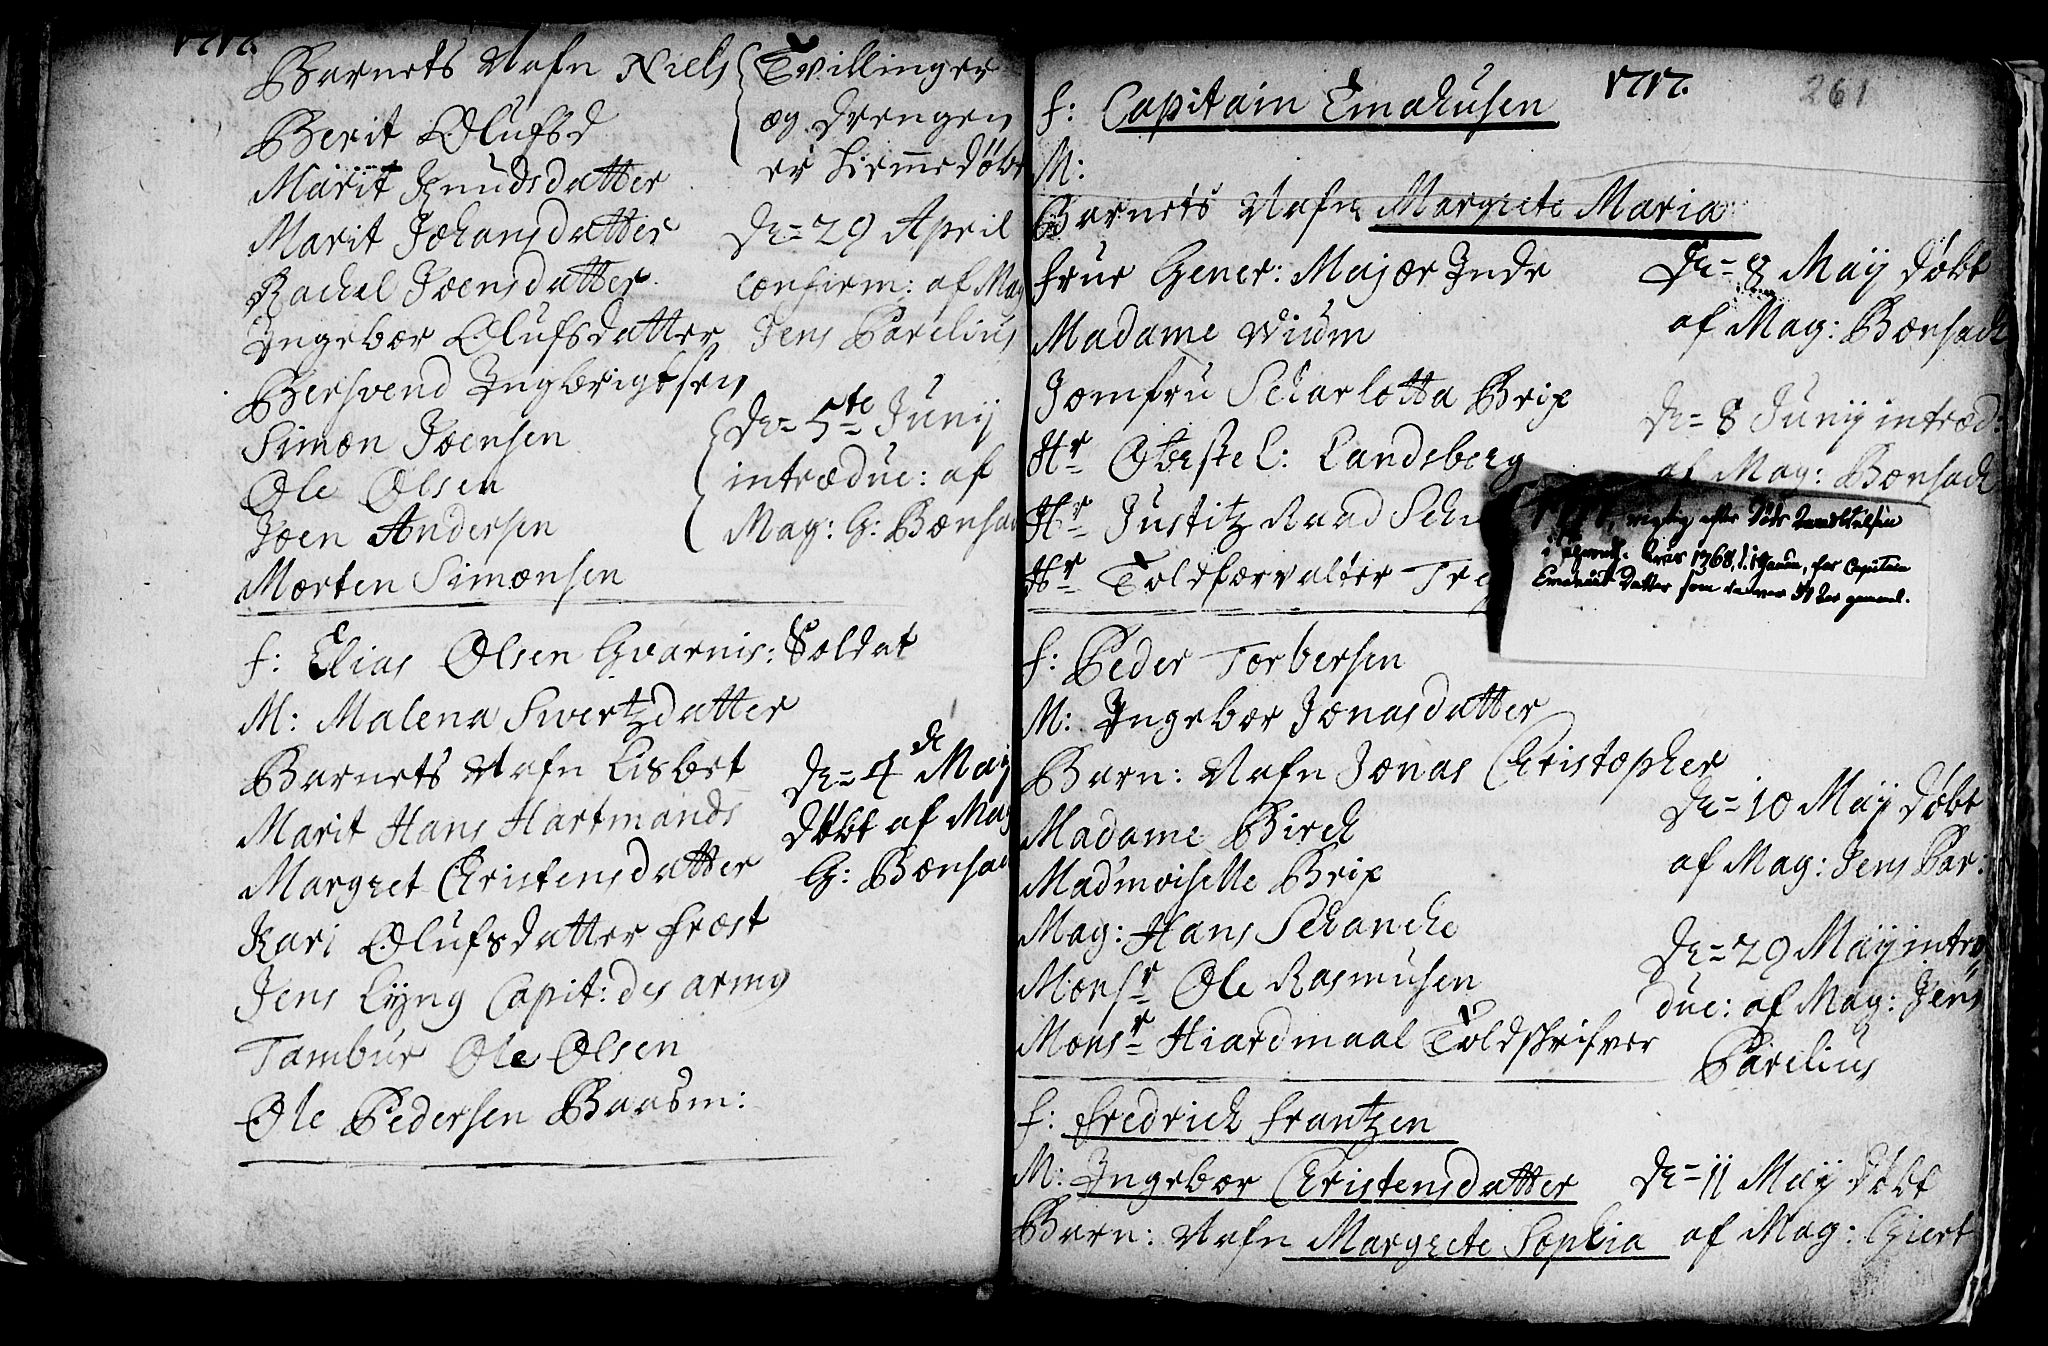 1717.
Barnets Nafn Niels
Berit Olufsd
Marit Knudsdatter
Marit Johansdatter
Rachel Joensdatter
Ingebor Olufsdatter
Bersvend Ingbrigtsen
Simon Joensen
Ole Olsen
Joen Andersen
Morten Simonsen
Tvillinger
og Drengen
er hiemmedøbt
De= 29 April
confirm: af Mag
Jens Parelius
De= 5te Junij
introduc: af
Mag: G: Bonsac
f: Elias Olsen Gvarnis: Soldat
M: Malena Swertzdatter
Barnets Nafn Lisbet
Marit Hans Hartmands
Margret Christensdatter
Kari Olufsdatter Frost
Jens Lyng Capit: des armg
Tambur Ole Olsen
Ole Pedersen Baasm:
De= 4 de Maij
Døbt af Mag
G: Bonsac
1717.
261
f: Capitain Emahusen
M:
Barnets Nafn Margrete Maria
Frue Gener: Major Inde
Madame Wium
Jomfru Scharlotta Brix
Hr Oberste L: Landsberg
Hr Justitz Raad Sch
Hr Toldforvalter Tre
De= 8 Maij Døbt
af Mag: Bonsach
De= 8 Junij introd:
af Mag: Bonsach
rigtig efter
1768, for Capitain
Datter som
f: Peder Torbersen
M: Ingebor Jonasdatter
Barn: Nafn Jonas Christopher
Madame Birch
Madmoiselle Brix
Mag: Hans Schancke
Monsr Ole Rasmusen
Monsr Hiardmaal Toldskrifver
De= 10 Maij Døbt
af Mag: Jens Par:
De= 29 Maij intro
duc: af Mag: Jens
Parelius
f: Fredrich Frantzen
M: Ingebor Christensdatter
Barn: Nafn Margrete Sophia
De= 11 Maij Døbt
af Mag: Giert